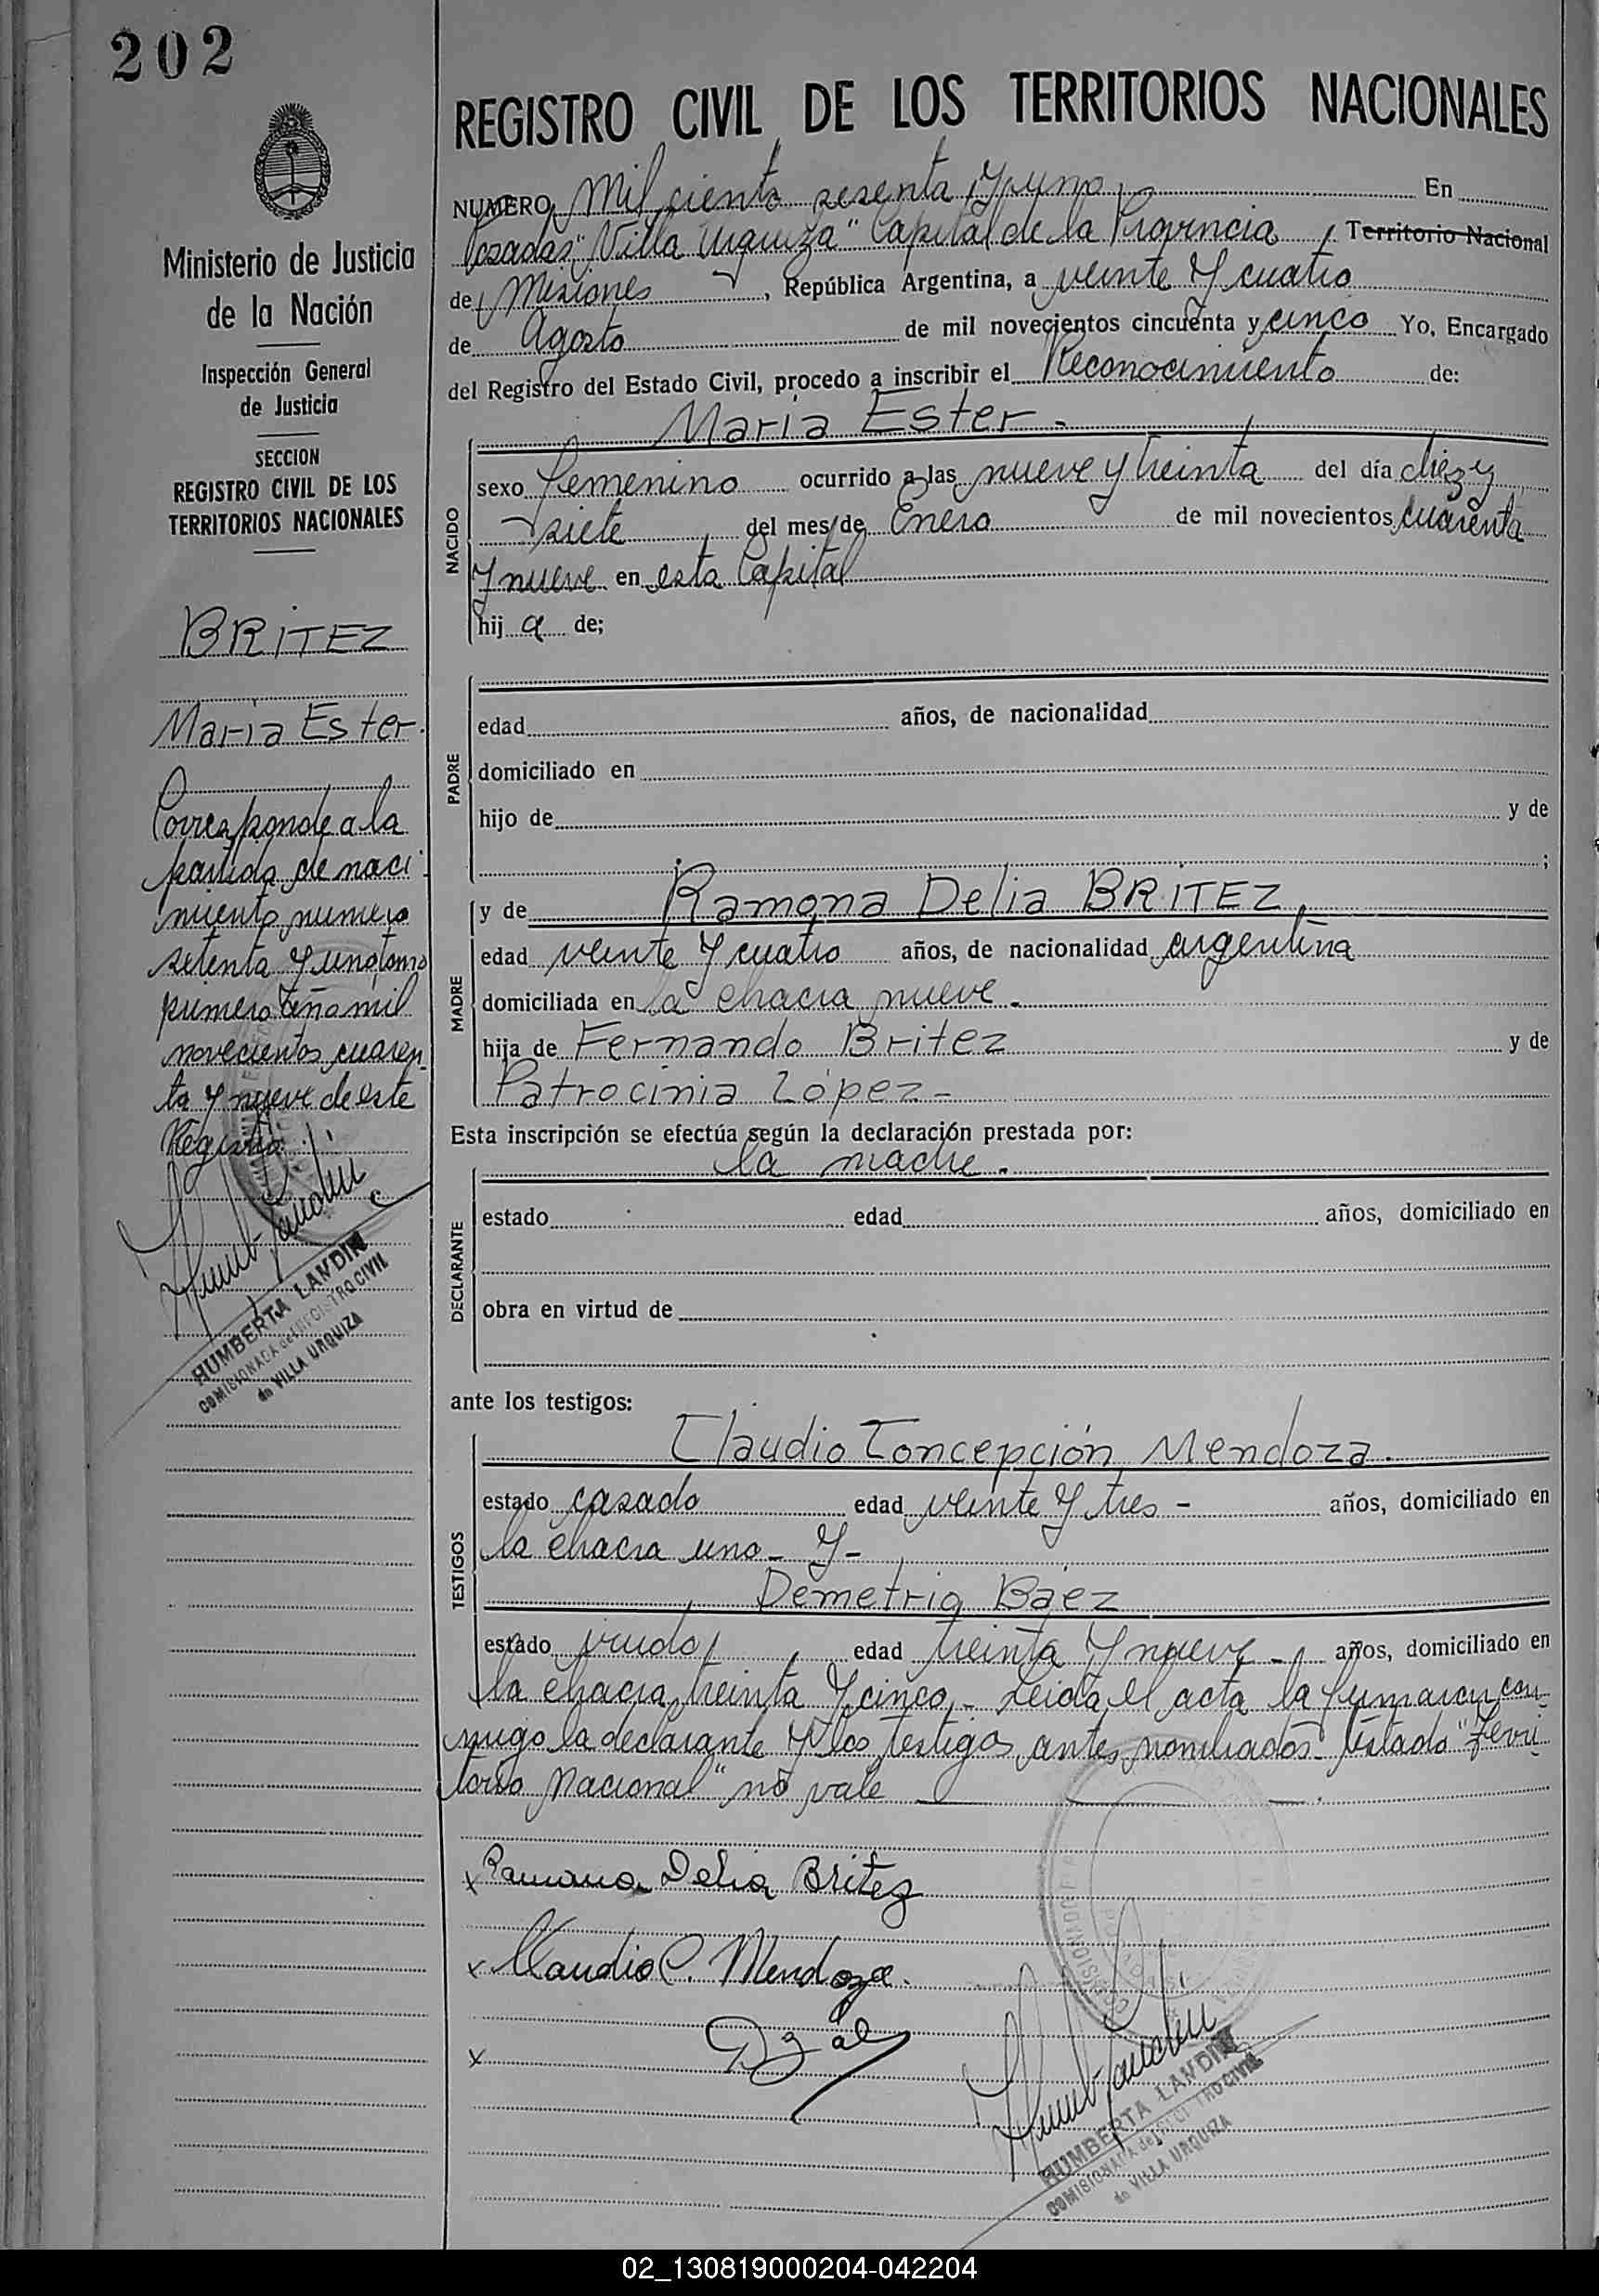 202
Ministerio de Justicia
de la Nación
Inspección General
de Justicia
SECCION
REGISTRO CIVIL DE LOS
TERRITORIOS NACIONALES
BRITEZ
Maria Ester.
Corresponde a la
partida de naci
miento numero
setenta y uno, tomo
primero año mil
novecientos cuaren_
ta y nueve de este
Registro.
HUMBERTA LANDIN
COMISIONADA del REGISTRO CIVIL
de VILLA URQUIZA
REGISTRO CIVIL DE LOS TERRITORIOS NACIONALES
NUMERO Mil ciento sesenta y uno En
Posadas, "Villa Urquiza" Capital de la Provincia, Territorio Nacional
de Misiones, República Argentina, a veinte y cuatro
de Agosto de mil novecientos cincuenta y cinco Yo, Encargado
del Registro del Estado Civil, procedo a inscribir el Reconocimiento de:
Maria Ester -
NACIDO
sexo femenino ocurrido a las nueve y treinta del día diez y
siete del mes de Enero de mil novecientos cuarenta
y nueve en esta Capital
hij a de;
PADRE
edad años, de nacionalidad
domiciliado en
hijo de y de
;
MADRE
y de Ramona Delia BRITEZ,
edad veinte y cuatro años, de nacionalidad argentina
domiciliada en la chacra nueve.
hija de Fernando Britez y de
Patrocinia López -
Esta inscripción se efectúa según la declaración prestada por:
la madre.
DECLARANTE
estado edad años, domiciliado en
obra en virtud de
ante los testigos:
TESTIGOS
Claudio Concepción Mendoza.
estado casado edad veinte y tres - años, domiciliado en
la chacra uno - y -
Demetrio Báez
estado viudo, edad treinta y nueve - años, domiciliado en
la chacra treinta y cinco. - Leida el acta la firmaron con_
migo la declarante y los testigos antes nombrados. Testado "Terri_
torio Nacional" no vale
x Ramona Delia Britez
x Claudio C. Mendoza.
x
HUMBERTA LANDIN
COMISIONADA del REGISTRO CIVIL
de VILLA URQUIZA
02_130819000204-042204